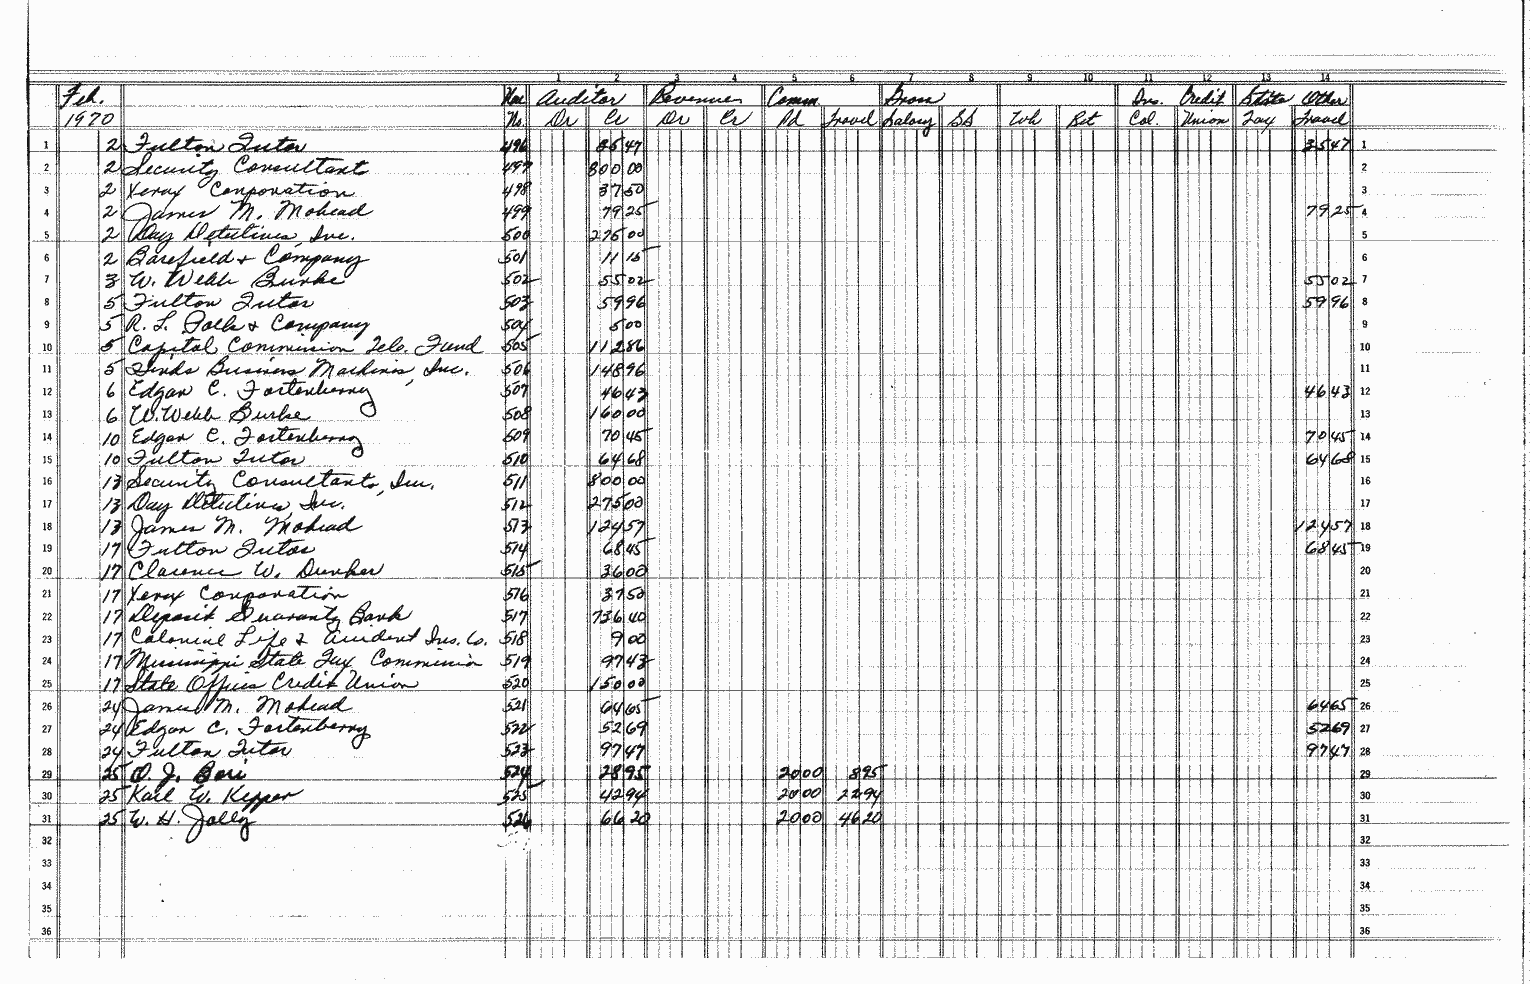 1 2 3 4 5 6 7 8 9 10 11 12 13 14
Feb. Auditor Revenues Comm. Gross Ins. Credit State Other
1970 No. Dr Cr Dr Cr Pd Travel Salary SS Wh Ret Col. Union Tax Travel
1 2 Fulton Tutor 496 35 47 35 47 1
2 2 Security Consultant 497 800 00 2
3 2 Xerox Corporation 498 37 50 3
4 2 James M. Mohead 499 79 25 79 25 4
5 2 Day Detectives, Inc. 500 275 00 5
6 2 Barefield & Company 501 11 15 6
7 3 W. Webb Burke 502 55 02 55 02 7
8 5 Fulton Tutor 503 59 96 59 96 8
9 5 R. L. Polk & Company 504 5 00 9
10 5 Capitol Commission Tele. Fund 505 112 86 10
11 5 Business Machines, Inc. 506 148 96 11
12 6 Edgar C. Fortenberry 507 46 43 46 43 12
13 6 W. Webb Burke 508 160 00 13
14 10 Edgar C. Fortenberry 509 70 45 70 45 14
15 10 Fulton Tutor 510 64 68 64 68 15
16 13 Security Consultants, Inc. 511 800 00 16
17 13 Day Detectives, Inc. 512 275 00 17
18 13 James M. Mohead 513 124 57 124 57 18
19 17 Fulton Tutor 514 68 45 68 45 19
20 17 Clarence W. 515 36 00 20
21 17 Xerox Corporation 516 37 50 21
22 17 Deposit Guaranty Bank 517 736 40 22
23 17 Colonial Life & Accident Ins. Co. 518 9 00 23
24 17 Mississippi State Tax Commission 519 97 43 24
25 17 State Offices Credit Union 520 150 00 25
26 24 James M. Mohead 521 64 65 64 65 26
27 24 Edgar C. Fortenberry 522 52 69 52 69 27
28 24 Fulton Tutor 523 97 47 97 47 28
29 25 O. J. Bori 524 28 95 20 00 8 95 29
30 25 Karl W. Kepper 525 42 94 20 00 22 94 30
31 25 W. H. Jolly 526 66 20 20 00 46 20 31
32 32
33 33
34 34
35 35
36 36